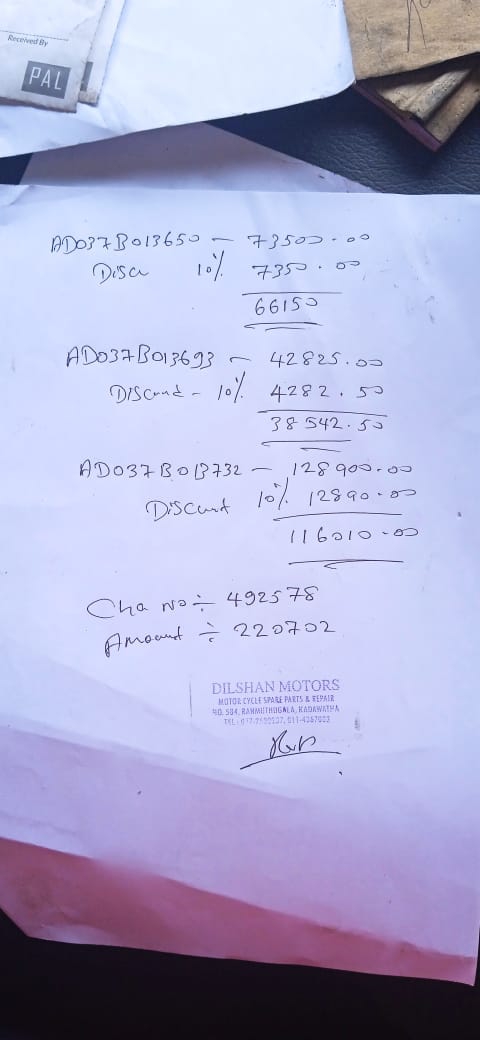 Received By
PAL
AD037B013650 - 73500.00
Disc 10% 7350.00
66150
AD037B013693 - 42825.00
Discount - 10% 4282.50
38542.50
AD037B013732 - 128900.00
Discunt 10% 12890.00
116010.00
Cha No ÷ 492578
Amount ÷ 220702
DILSHAN MOTORS
MOTOR CYCLE SPARE PARTS & REPAIR
NO. 504, RANMUTHUGALA, KADAWATHA
TEL :